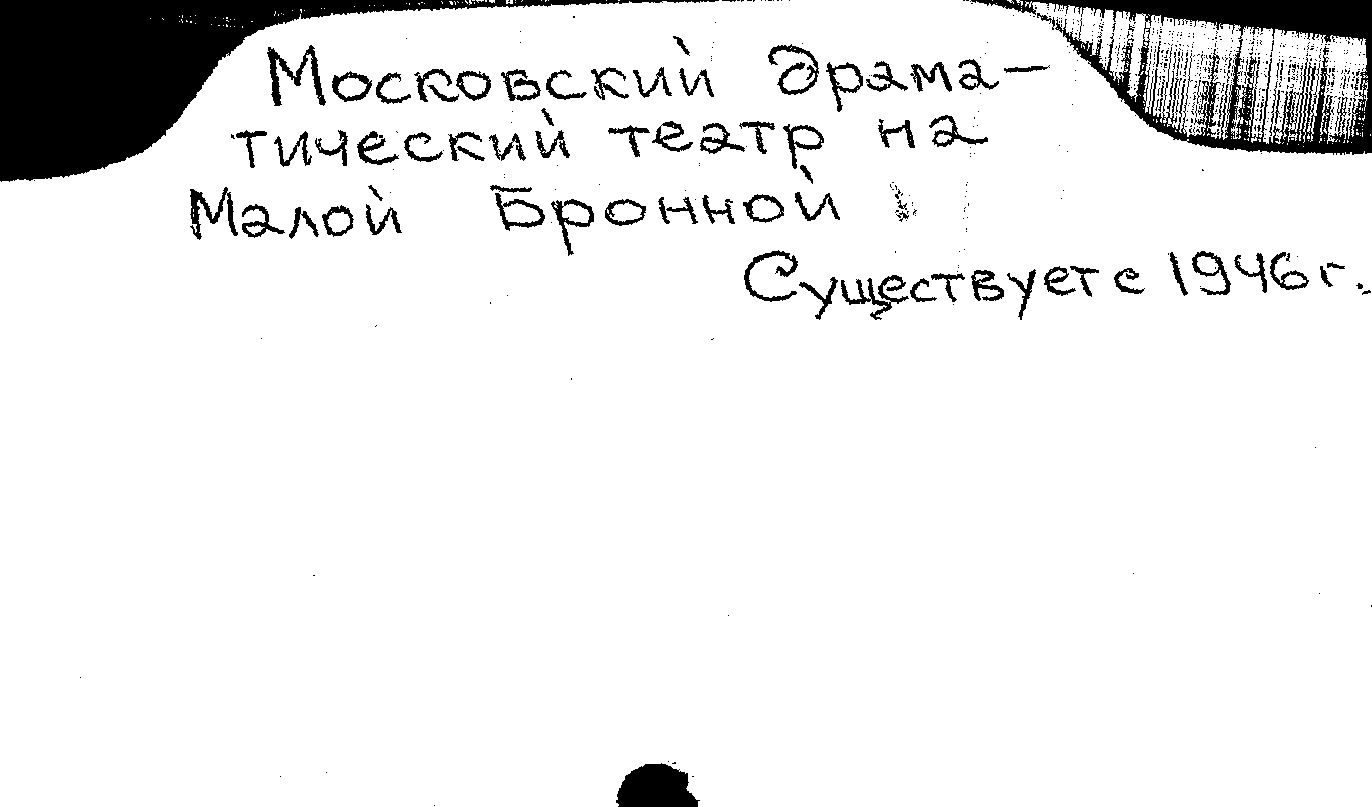 Московский драма-
тический театр на
Малой Бронной
Существует с 1946 г.